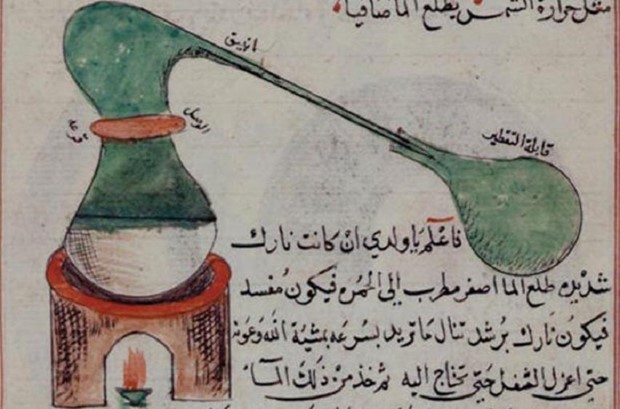 مثل حرارة الشمس يطلع الما صافيا
انبيق
الوصل
قرعه
قابلة التقطير
فاعلم يا ولدي ان كانت نارك
شديده طلع الما اصفر مطرب الى الحمره فيكون مفسد
فيكون نارك برشد تنال ما تريد بسرعه بمشيئة الله وعونه
حتى اعزل الثفل حتى تحتاج اليه ثم خذ من ذلك المآء